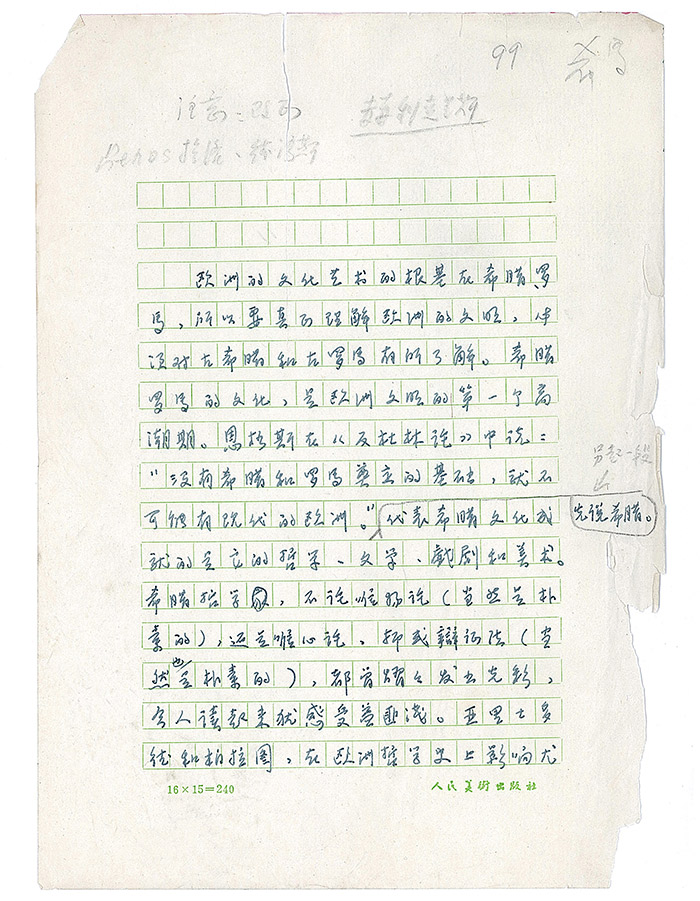 99
欧洲的文化艺术的根基在希腊罗
马，所以要真正理解欧洲的文明，
须对古希腊和古罗马有所了解。希腊
罗马的文化，是欧洲文明的第一个高
潮期。恩格斯在《反杜林论》中说：
“没有希腊和罗马奠定的基础，就不
可能有现代的欧洲。”代表希腊文化成
另起一段
先说希腊。
就的是它的哲学、文学、戏剧和美术。
希腊哲学家，不论唯物论（当然是朴
素的），还是唯心论，抑或辩证法（当
然也是朴素的），都曾耀耀发出光彩，
令人读起来犹感受益匪浅。亚里士多
德和柏拉图，在欧洲哲学史上影响尤
16×15=240
人民美術出版社